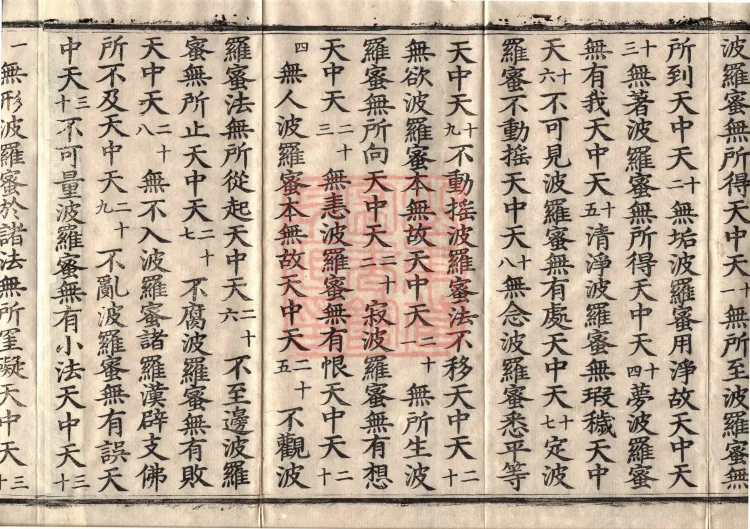 波羅蜜無所得天中天十一無所至波羅蜜無
所到天中天十二無垢波羅蜜用淨故天中天
十三無著波羅蜜無所得天中天十四夢波羅蜜
無有我天中天十五清淨波羅蜜無瑕穢天中
天十六不可見波羅蜜無有處天中天十七定波
羅蜜不動搖天中天十八無念波羅蜜悉平等
天中天十九不動搖波羅蜜法不移天中天二十
無欲波羅蜜本無故天中天二十一無所生波
羅蜜無所向天中天二十二寂波羅蜜無有想
天中天二十三無恚波羅蜜無有恨天中天二十
四無人波羅蜜本無故天中天二十五不觀波
羅蜜法無所從起天中天二十六不至邊波羅
蜜無所止天中天二十七不腐波羅蜜無有敗
天中天二十八無不入波羅蜜諸羅漢辟支佛
所不及天中天二十九不亂波羅蜜無有誤天
中天三十不可量波羅蜜無有小法天中天三十
一無形波羅蜜於諸法無所罣礙天中天三十